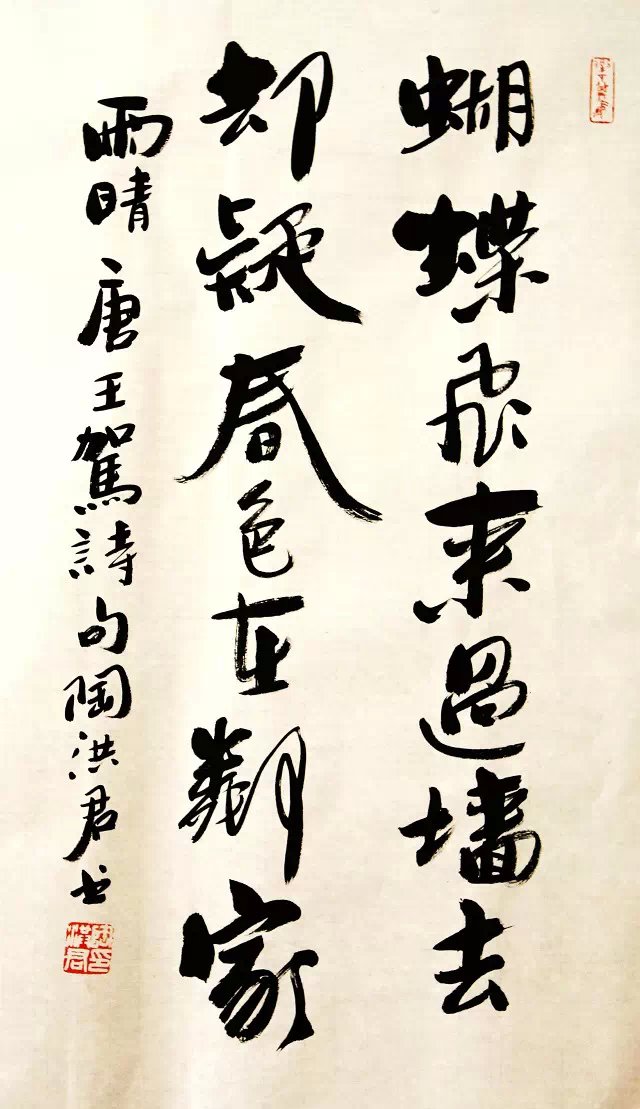 蝴蝶飛来過墙去
却疑春色在鄰家
雨晴 唐王駕詩句陶洪君书